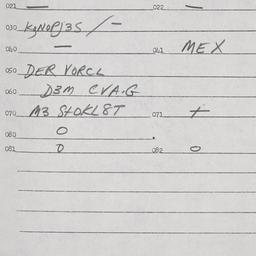 021 — 022 —
030 KgNOPJ3S / —
040 — 041 MEX
050 DER VORCL
060 D3M CVA.G
070 M3 StOKL8T 071 +
080 O
081 O 082 O